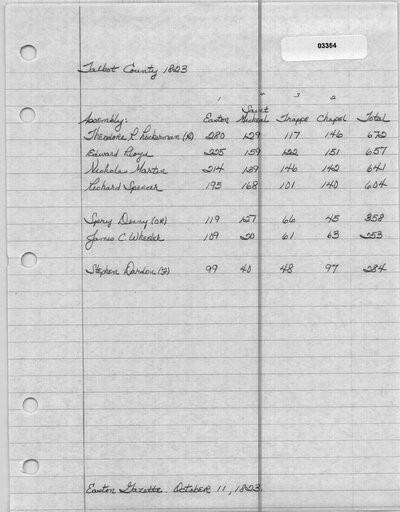 03354
Talbot County 1823
1 3 2
Saint
Assembly: Easton Micheal Trappe Chapel Total
Theodore R. Lockerman (R) 280 129 117 146 672
Edward Lloyd 225 159 122 151 657
Nicholas Martin 214 139 146 142 641
Richard Spencer 195 168 101 140 604
Spery Denny (OR) 119 127 66 45 358
James C. Wheeler 109 20 61 63 253
Stephen Dardon 99 40 48 97 284
Easton Gazette October 11, 1823.